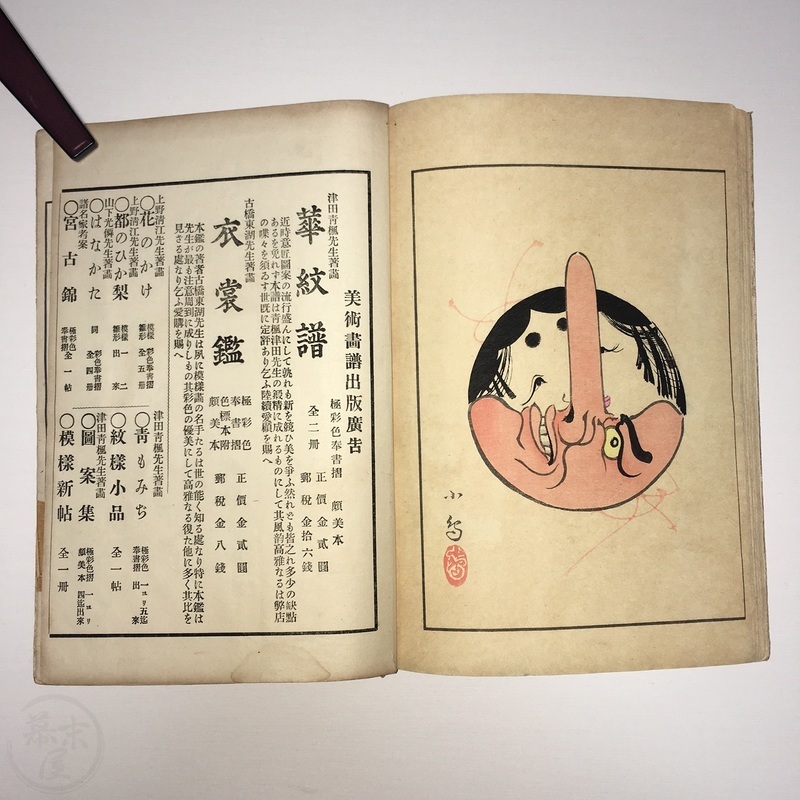 美術畫譜出版廣告
津田青楓先生著畫
華紋譜
極彩色奉書摺 頗美本
全二册
正價金貳圓
郵稅金拾六錢
近時意匠圖案の流行盛んにして孰れも新を競ひ美を爭ふ然れども皆之れ多少の缺點
あるを免れず本譜は青楓津田先生の最精に成れるものにして其風韵高雅なるは弊店
の喋々を須ゐず世既に定評あり乞ふ陸續愛顧を賜へ
古橋東湖先生著畫
衣裳鑑
極彩色
奉書摺
色標本附
頗美本
正價金貳圓
郵稅金八錢
本鑑の著者古橋東湖先生は夙に模樣畫の名手たるは世の能く知る處なり特に本鑑は
先生が最も注意周到に成りしもの其彩色の優美にして高雅なる復た他に多く其比を
見さる處なり乞ふ愛購を賜へ
上野清江先生著畫
○花のかけ
模樣雛形
彩色奉書摺
全五册
上野清江先生著畫
○都のひか梨
模樣雛形
一二出來
山下光僊先生著畫
○はなかた
同
彩色奉書摺
全四册
諸名家考案
○宮古錦
極彩色
奉書摺
全一帖
津田青楓先生著畫
○青もみぢ
極彩色
奉書摺
一ヨリ五迄
出來
○紋樣小品
全一帖
津田青楓先生著畫
○圖案集
極彩色摺
頗美本
一ヨリ
四迄出來
○模樣新帖
全一册
小
幕末屋